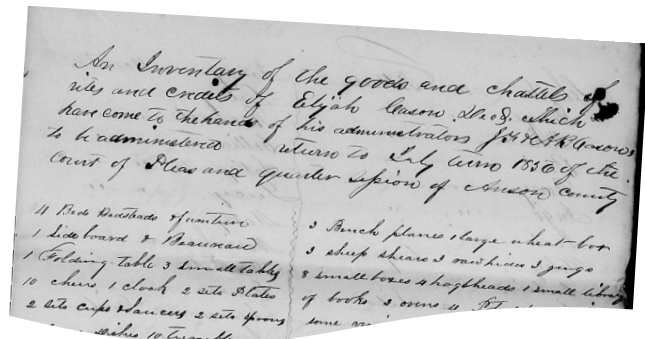 An Inventary of the goods and chattels of
rites and credits of Elijah Cason, Dec'd. which
have come to the hands of his administrators J. Casons
to be administered return to July term 1856 of the
Court of Pleas and quarter session of Anson County
4 Beds Bedsteads & furniture
1 Sideboard & Beaureau
1 Folding table 3 small tables
10 chers, 1 clock 2 sets Plates
2 sets cups & saucers 2 sets spoons
dishes 10
3 Bench planes 1 large wheat box
3 sheep shears 3 raw hides 3 jugs
8 small boxes 4 hogsheads 1 small library
of books 3 ovens 4
some